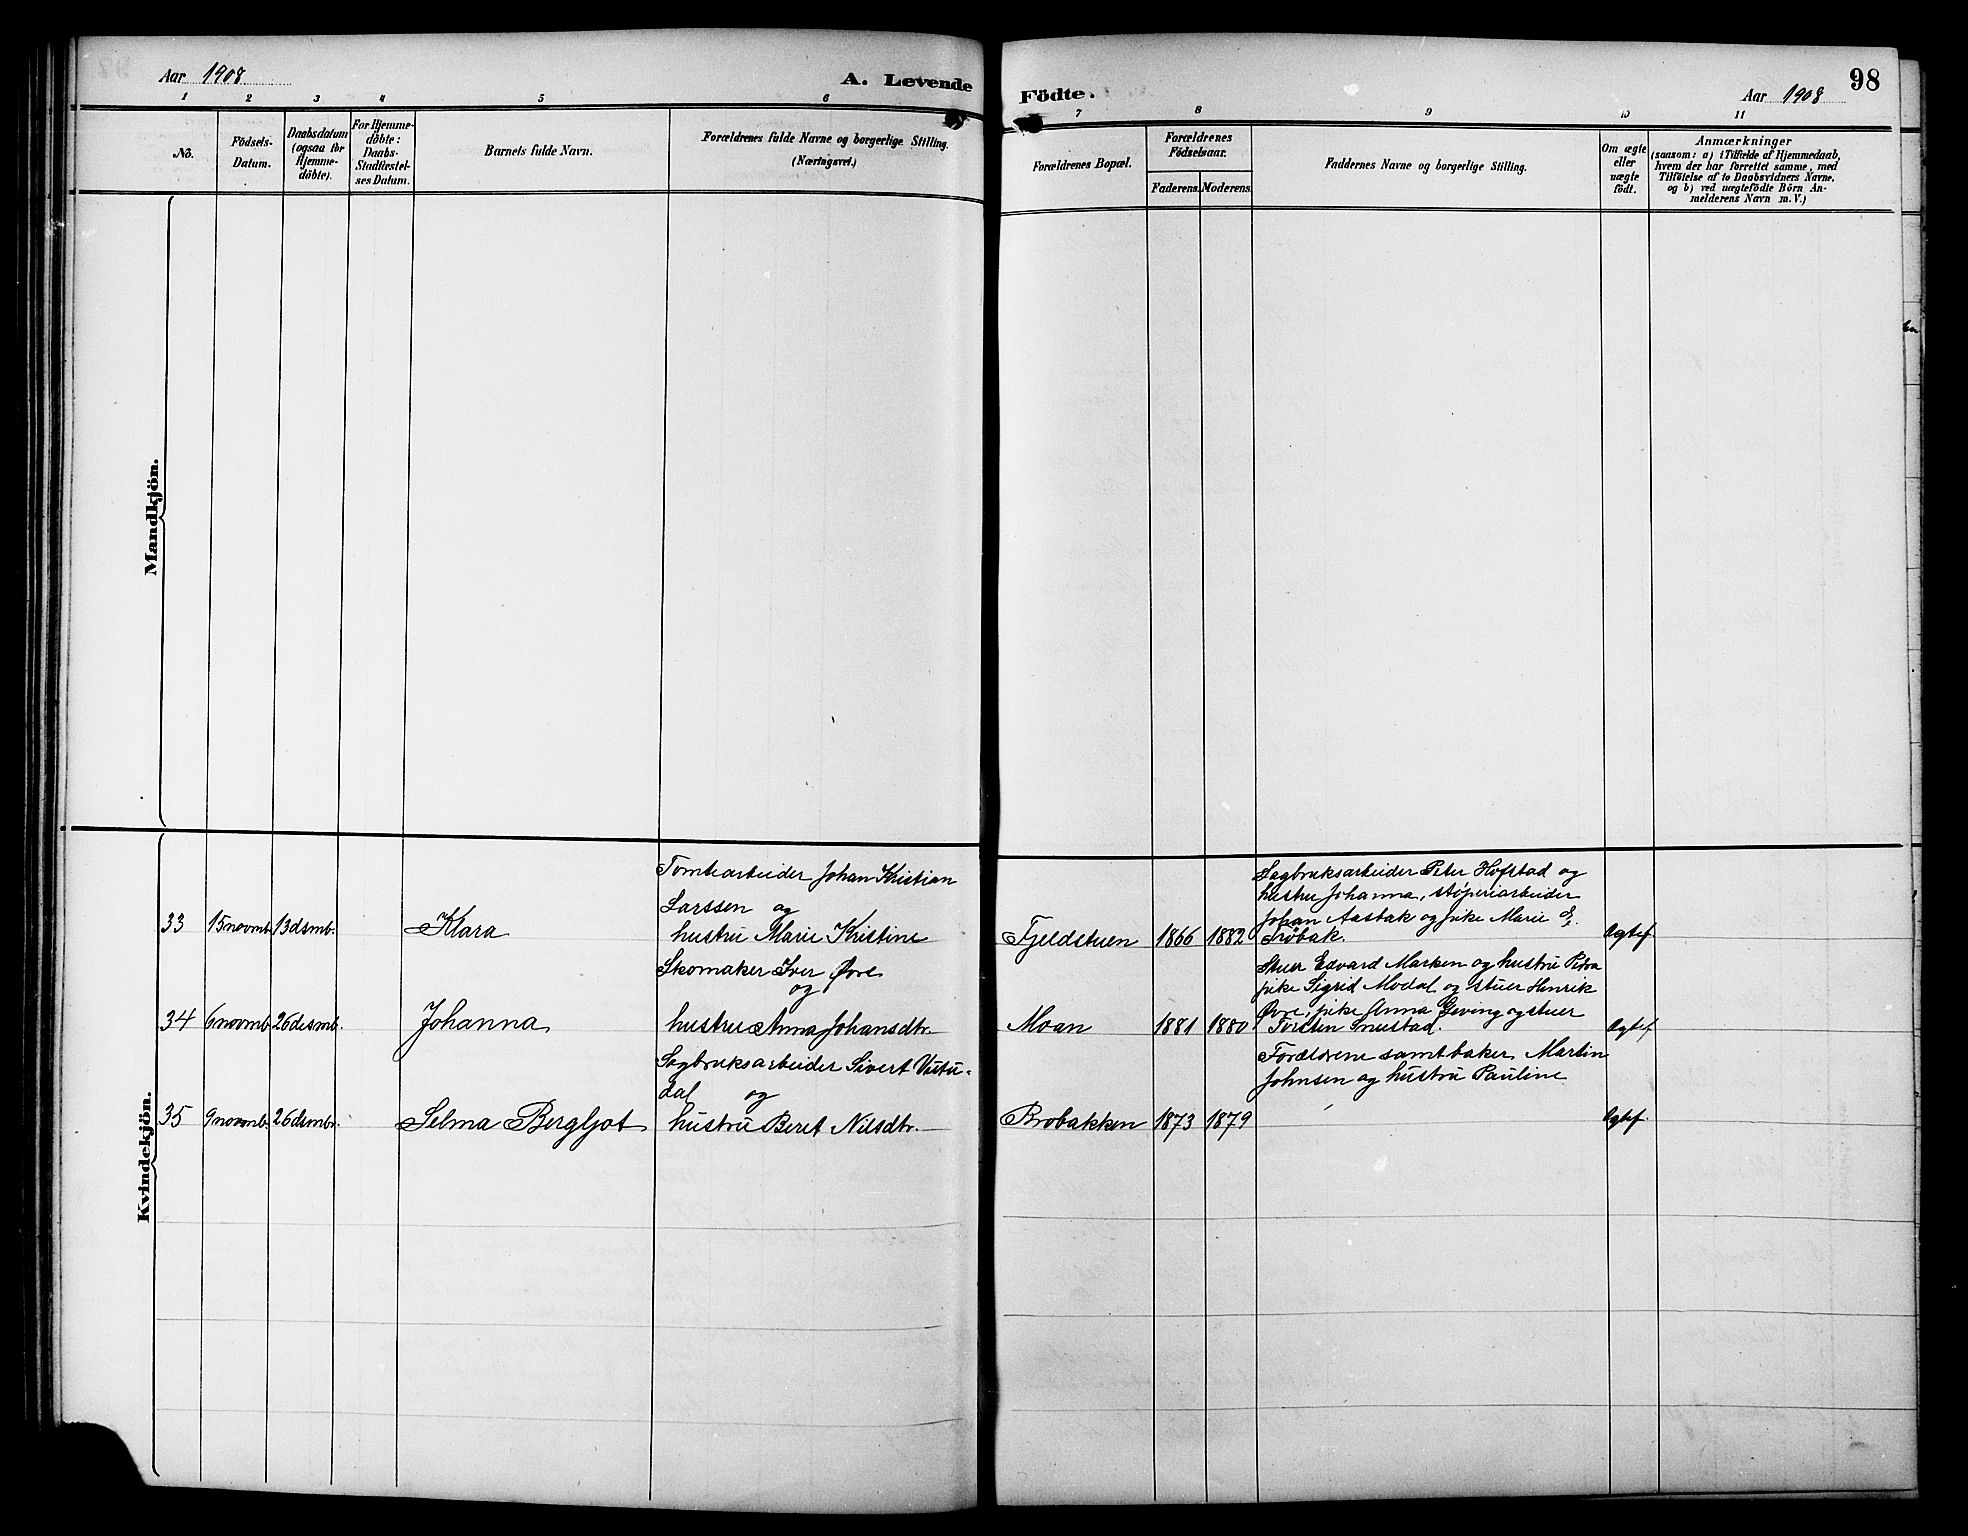 Aar 1908
A. Levende
1 2 3 4 5 6
No.
Födsels-
Datum.
Daabsdatum
(ogsaa for
Hjemme-
döbte).
For Hjemme-
döbte:
Daabs-
Stadfæstel-
ses Datum.
Barnets fulde Navn.
Forældrenes fulde Navne og borgerlige Stilling.
(Næringsvei.)
Mandkjön.
Kvindekjön.
Tomtearbeider Johan Kristian
Larssen og
33 15 novmb. 13 dsmb. Klara hustru Marie Kristine
Skomaker Iver Øvre
og
34 6 novmb. 26 desmb. Johanna hustru Anna Johansdtr.
Sagbruksarbeider Sivert Vutu-
dal og
35 9 novmb. 26 dsmbr. Selma Bergljot hustru Beret Nilsdtr.
Födte.
Aar 1908
98
7 8 9 10 11
Forældrenes Bopæl.
Forældrenes
Födselsaar.
Faderens. Moderens.
Faddernes Navne og borgerlige Stilling.
Om ægte
eller
uægte
födt.
Anmærkninger
(saasom: a) i Tilfælde af Hjemmedaab,
hvem der har forrettet samme, med
Tilföielse af to Daabsvidners Navne.
og b) ved uægtefödte Börn An-
melderens Navn m. V.)
Sagbruksarbeider Peter Hofstad og
hustru Johanna, støperiarbeider
Johan Aasbak og pike Marie E.
Fjeldstuen 1866 1882 Trøbak. Ægtef.
Stuer Edvard Marken og hustru Petra
pike Sigrid Modal og stuer Henrik
Øvre, pike Anna Geving og stuer
Moan 1881 1880 Torsten Snustad. Ægtef.
Forældrene samt baker Martin
Johnsen og hustru Pauline
Brobakken 1873 1879 Ægtef.